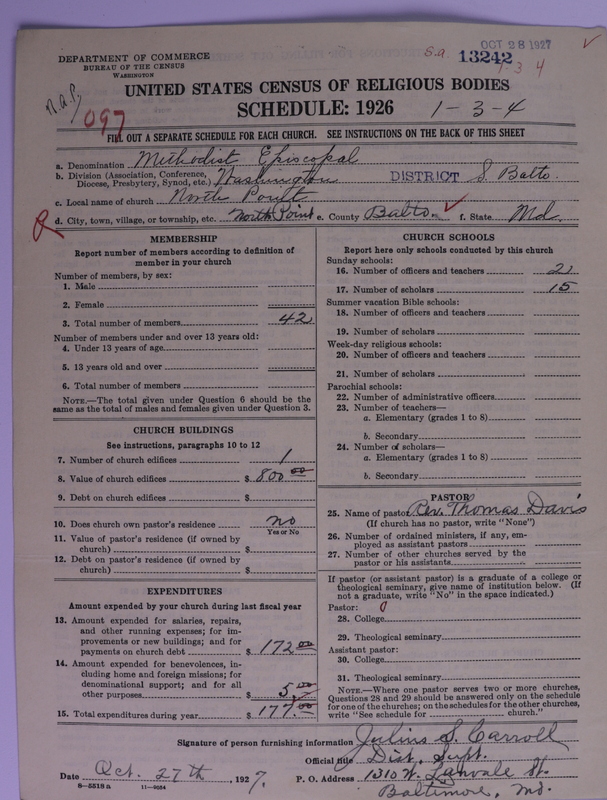 OCT 28 1927
DEPARTMENT OF COMMERCE
BUREAU OF THE CENSUS
WASHINGTON
S.a. 13242
1-3 4
UNITED STATES CENSUS OF RELIGIOUS BODIES
SCHEDULE: 1926 1-3-4
097
FILL OUT A SEPARATE SCHEDULE FOR EACH CHURCH. SEE INSTRUCTIONS ON THE BACK OF THIS SHEET
a. Denomination Methodist Episcopal
b. Division (Association, Conference, Diocese, Presbytery, Synod, etc.) Washington DISTRICT S. Balto.
c. Local name of church North Point
d. City, town, village, or township, etc. North Point e. County Balto. f. State Md.
MEMBERSHIP
Report number of members according to definition of
member in your church
Number of members, by sex:
1. Male
2. Female
3. Total number of members 42
Number of members under and over 13 years old:
4. Under 13 years of age
5. 13 years old and over
6. Total number of members
NOTE.—The total given under Question 6 should be the
same as the total of males and females given under Question 3.
CHURCH BUILDINGS
See instructions, paragraphs 10 to 12
7. Number of church edifices 1
8. Value of church edifices $ 800 00
9. Debt on church edifices $
10. Does church own pastor's residence no
Yes or No
11. Value of pastor's residence (if owned by
church) $
12. Debt on pastor's residence (if owned by
church) $
EXPENDITURES
Amount expended by your church during last fiscal year
13. Amount expended for salaries, repairs,
and other running expenses; for im-
provements or new buildings; and for
payments on church debt $ 172.00
14. Amount expended for benevolences, in-
cluding home and foreign missions; for
denominational support; and for all
other purposes $ 5.00
15. Total expenditures during year $ 177.00
CHURCH SCHOOLS
Report here only schools conducted by this church
Sunday schools:
16. Number of officers and teachers 2
17. Number of scholars 15
Summer vacation Bible schools:
18. Number of officers and teachers
19. Number of scholars
Week-day religious schools:
20. Number of officers and teachers
21. Number of scholars
Parochial schools:
22. Number of administrative officers
23. Number of teachers—
a. Elementary (grades 1 to 8)
b. Secondary
24. Number of scholars—
a. Elementary (grades 1 to 8)
b. Secondary
PASTOR
25. Name of pastor Rev. Thomas Davis
(If church has no pastor, write "None")
26. Number of ordained ministers, if any, em-
ployed as assistant pastors
27. Number of other churches served by the
pastor or his assistants
If pastor (or assistant pastor) is a graduate of a college or
theological seminary, give name of institution below. (If
not a graduate, write "No" in the space indicated.)
Pastor: 0
28. College
29. Theological seminary
Assistant pastor:
30. College
31. Theological seminary
NOTE.—Where one pastor serves two or more churches,
Questions 28 and 29 should be answered only on the schedule
for one of the churches; on the schedules for the other churches,
write "See schedule for church."
Signature of person furnishing information Julius S. Carroll
Official title Dist. Supt.
Date Oct. 27th, 1927. P. O. Address 1310 W. Lanvale St.
8—5518 a 11—9034 Baltimore, Md.